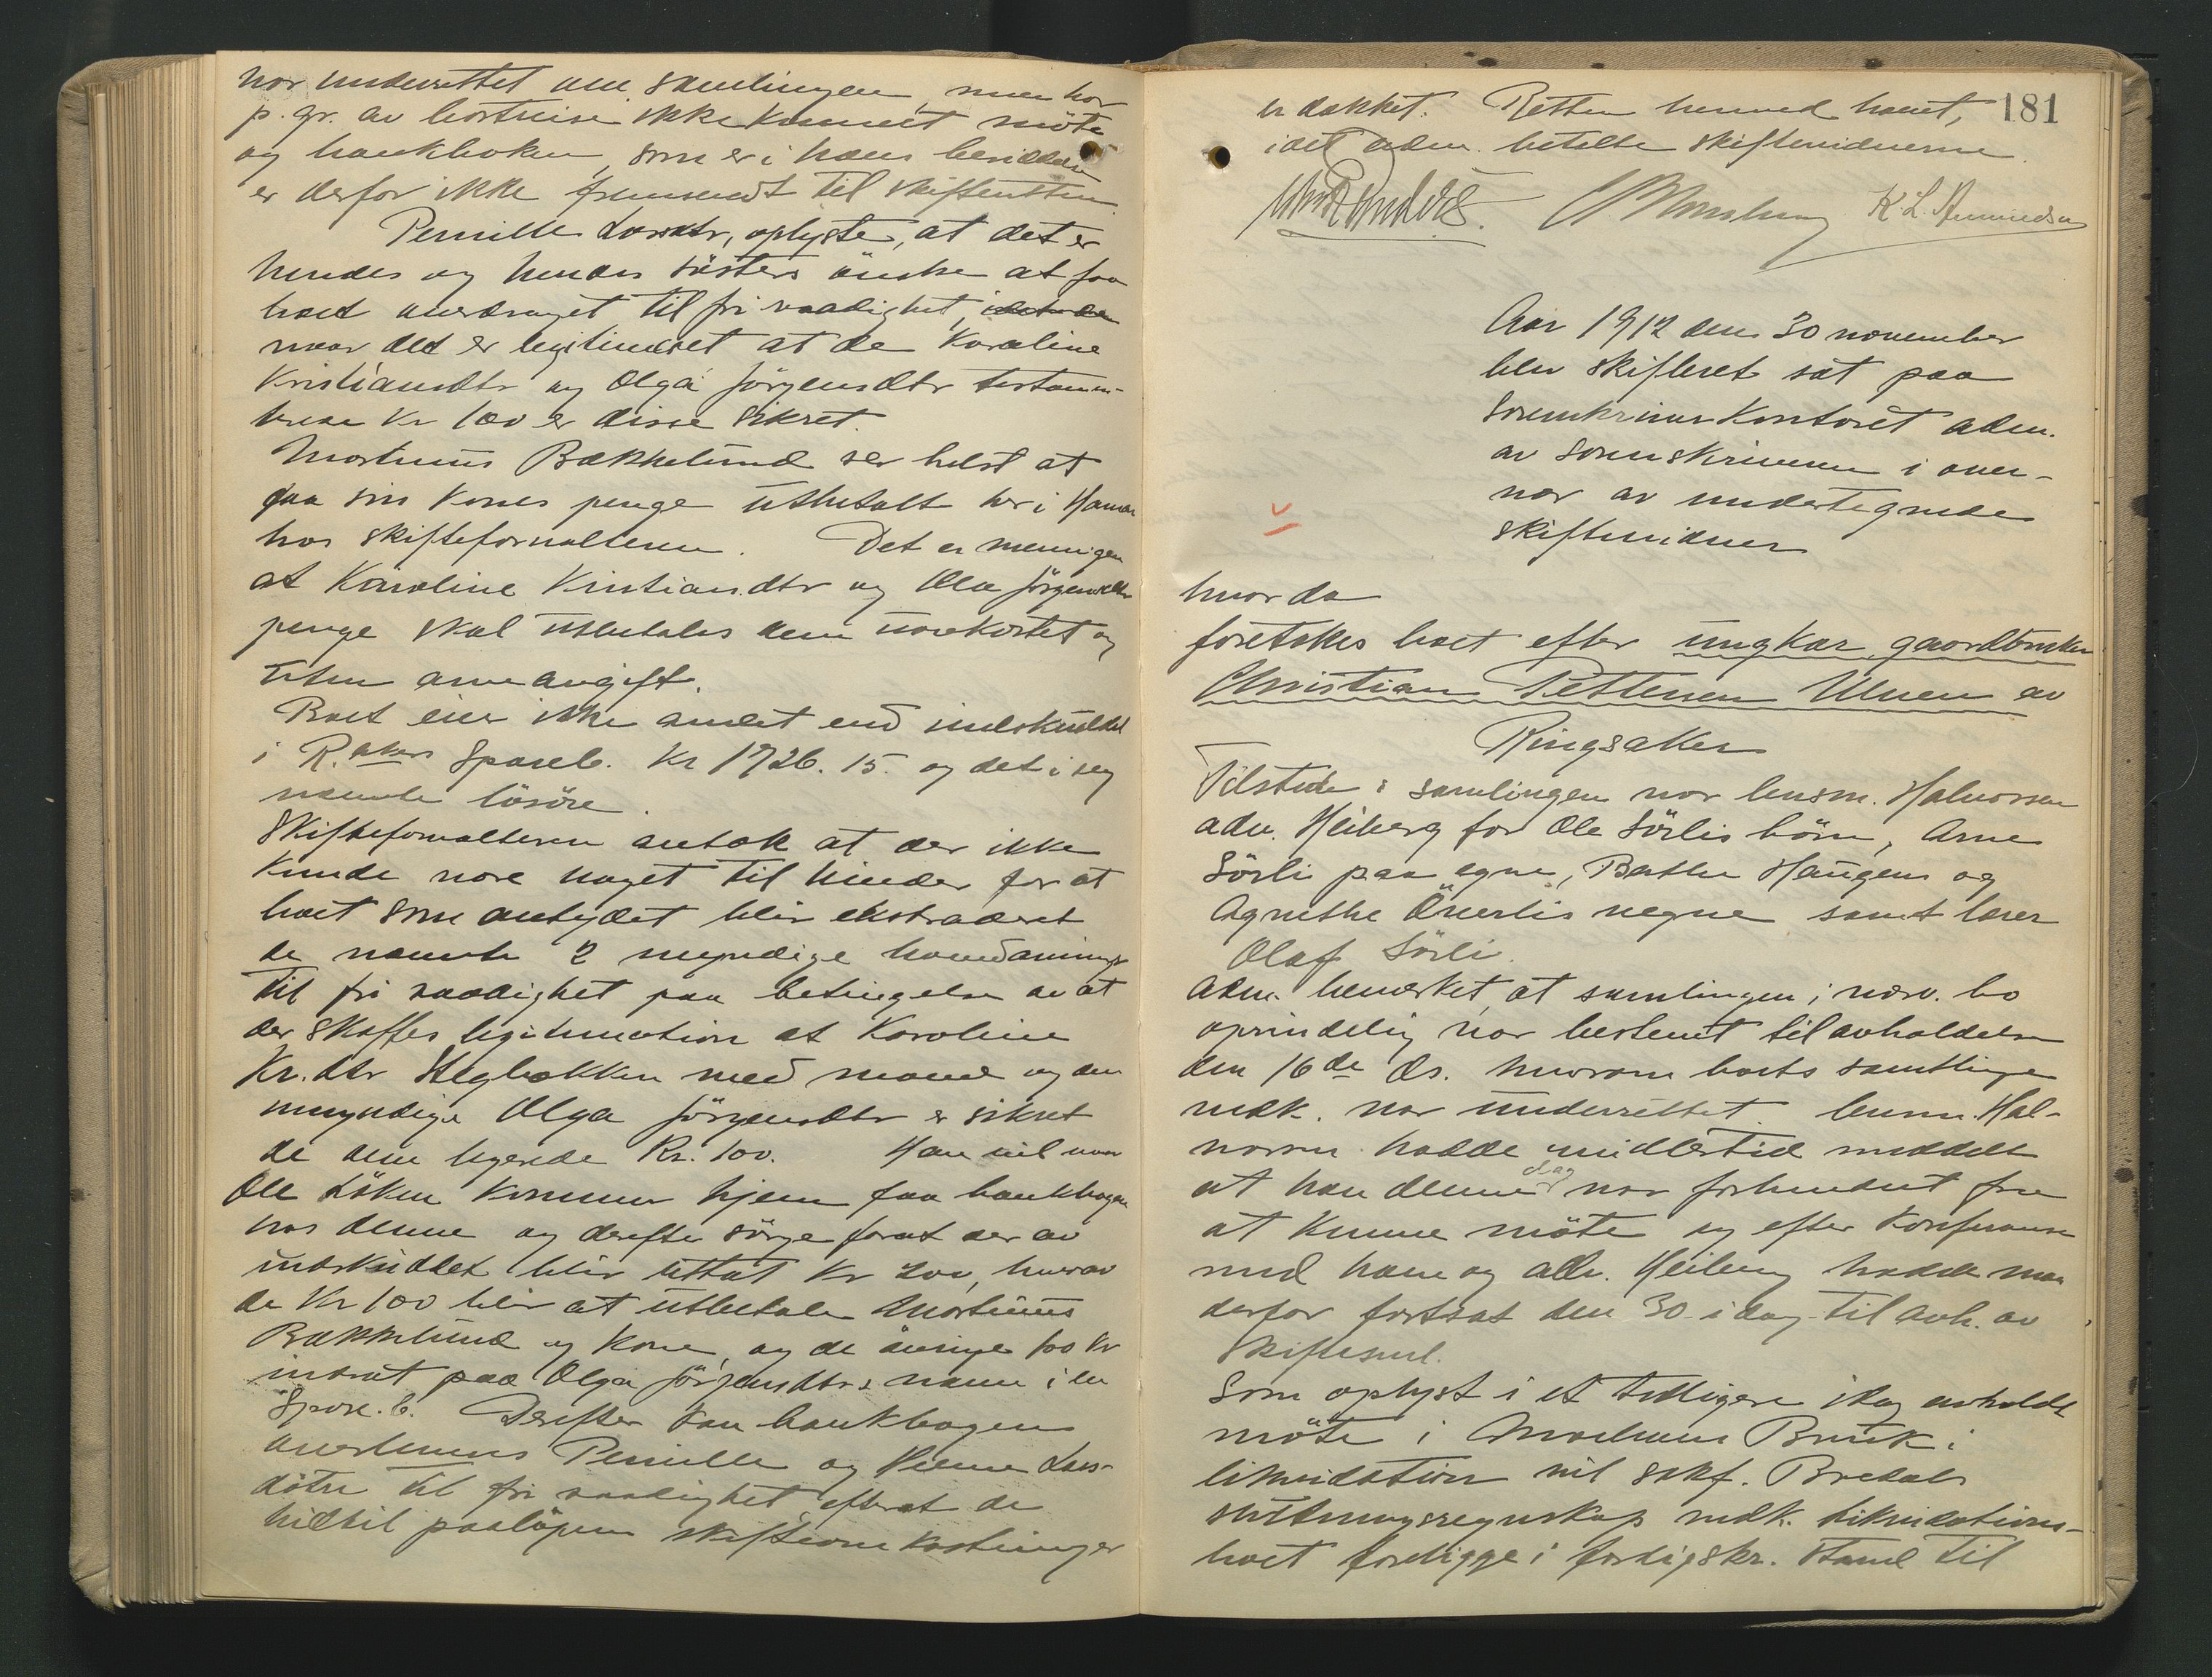 var underrettet om samlingen, men har
p. gr. av bortreise ikke kunnet møte
og bankboken, som er i hans besiddelse
er derfor ikke fremsendt til skifteretten.
Pernille Larsdtr, oplyste, at det er
hendes og hendes søsters ønske at faa
boet overdraget til fri raadighet,
naar det er legitimeret at de Karoline
Kristiansdtr og Olga Jørgensdtr testamen-
terede Kr 100 er disse sikret.
Martinius Bækkelund ser helst at
faa sin kones penge utbetalt her i Hamar
hos skifteforvalteren. Det er meningen
at Karoline Kristiansdtr og Olga Jørgensdtr
penge skal utbetales dem uavkortet og
uten arveavgift.
Boet eier ikke andet end indskuddet
i R.akers Spareb. Kr 1726.15. og det i reg
nævnte løsøre.
Skifteforvalteren antok at der ikke
kunde være noget til hinder for at
boet som antydet blir ekstraderet
de nævnte 2 myndige hovedarvinger
til fri raadighet paa betingelse av at
der skaffes legitimation at Karoline
Kr.dtr Stegbakken med mand og den
umyndige Olga Jørgensdtr er sikret
de dem legerede Kr. 100. Han vil naar
Ole Løken kommer hjem faa bankbogen
hos denne og derefter sørge for at der av
indskuddet blir uttat Kr 200, hvorav
de Kr 100 blir at utbetale Martinius
Bækkelund og kone og de øvrige 100 Kr
indsat paa Olga Jørgensdtrs navn i en
Spare.b. Derefter kan bankbogen
overleveres Pernille og Lars-
døtre til fri raadighet efterat de
hidtil paaløpne skifteomkostninger
181
er dækket. Retten hermed hævet,
idet adm. betalte skiftevidnerne.
K. L. Amundsen
Aar 1912 den 30 november
blev skifteret sat paa
sorenskriverkontoret adm.
av sorenskriveren i over-
vær av undertegnede
skiftevidner
hvor da
foretokes boet efter ungkar, gaardbruker
Christian Pettersen Ulven av
Ringsaker
Tilstede i samlingen var lensm. Halvorsen
adv. Heiberg for Ole Sørlis børn, Arne
Sørli paa egne, Berthe Haugens og
Agnethe Øverlis vegne samt lærer
Olaf Sørli.
Adm. bemerket at samlingen i nærv. bo
oprindelig var bestemt til avholdelse
den 16de ds. hvorom boets samtlige
vedk. var underrettet. lensm. Hal-
vorsen hadde imidlertid meddelt
at han denne dag var forhindret fra
at kunne møte og efter konferanse
med ham og adv. Heiberg hadde man
derfor fortsat den 30. idag til avh. av
skiftesaml.
Som oplyst i et tidligere idag avholdt
møte i Bruk i
likvidation vil sakf. Bredals
slutningsregnskap vedk. likvidations-
boet foreligge i færdig skr. stand til